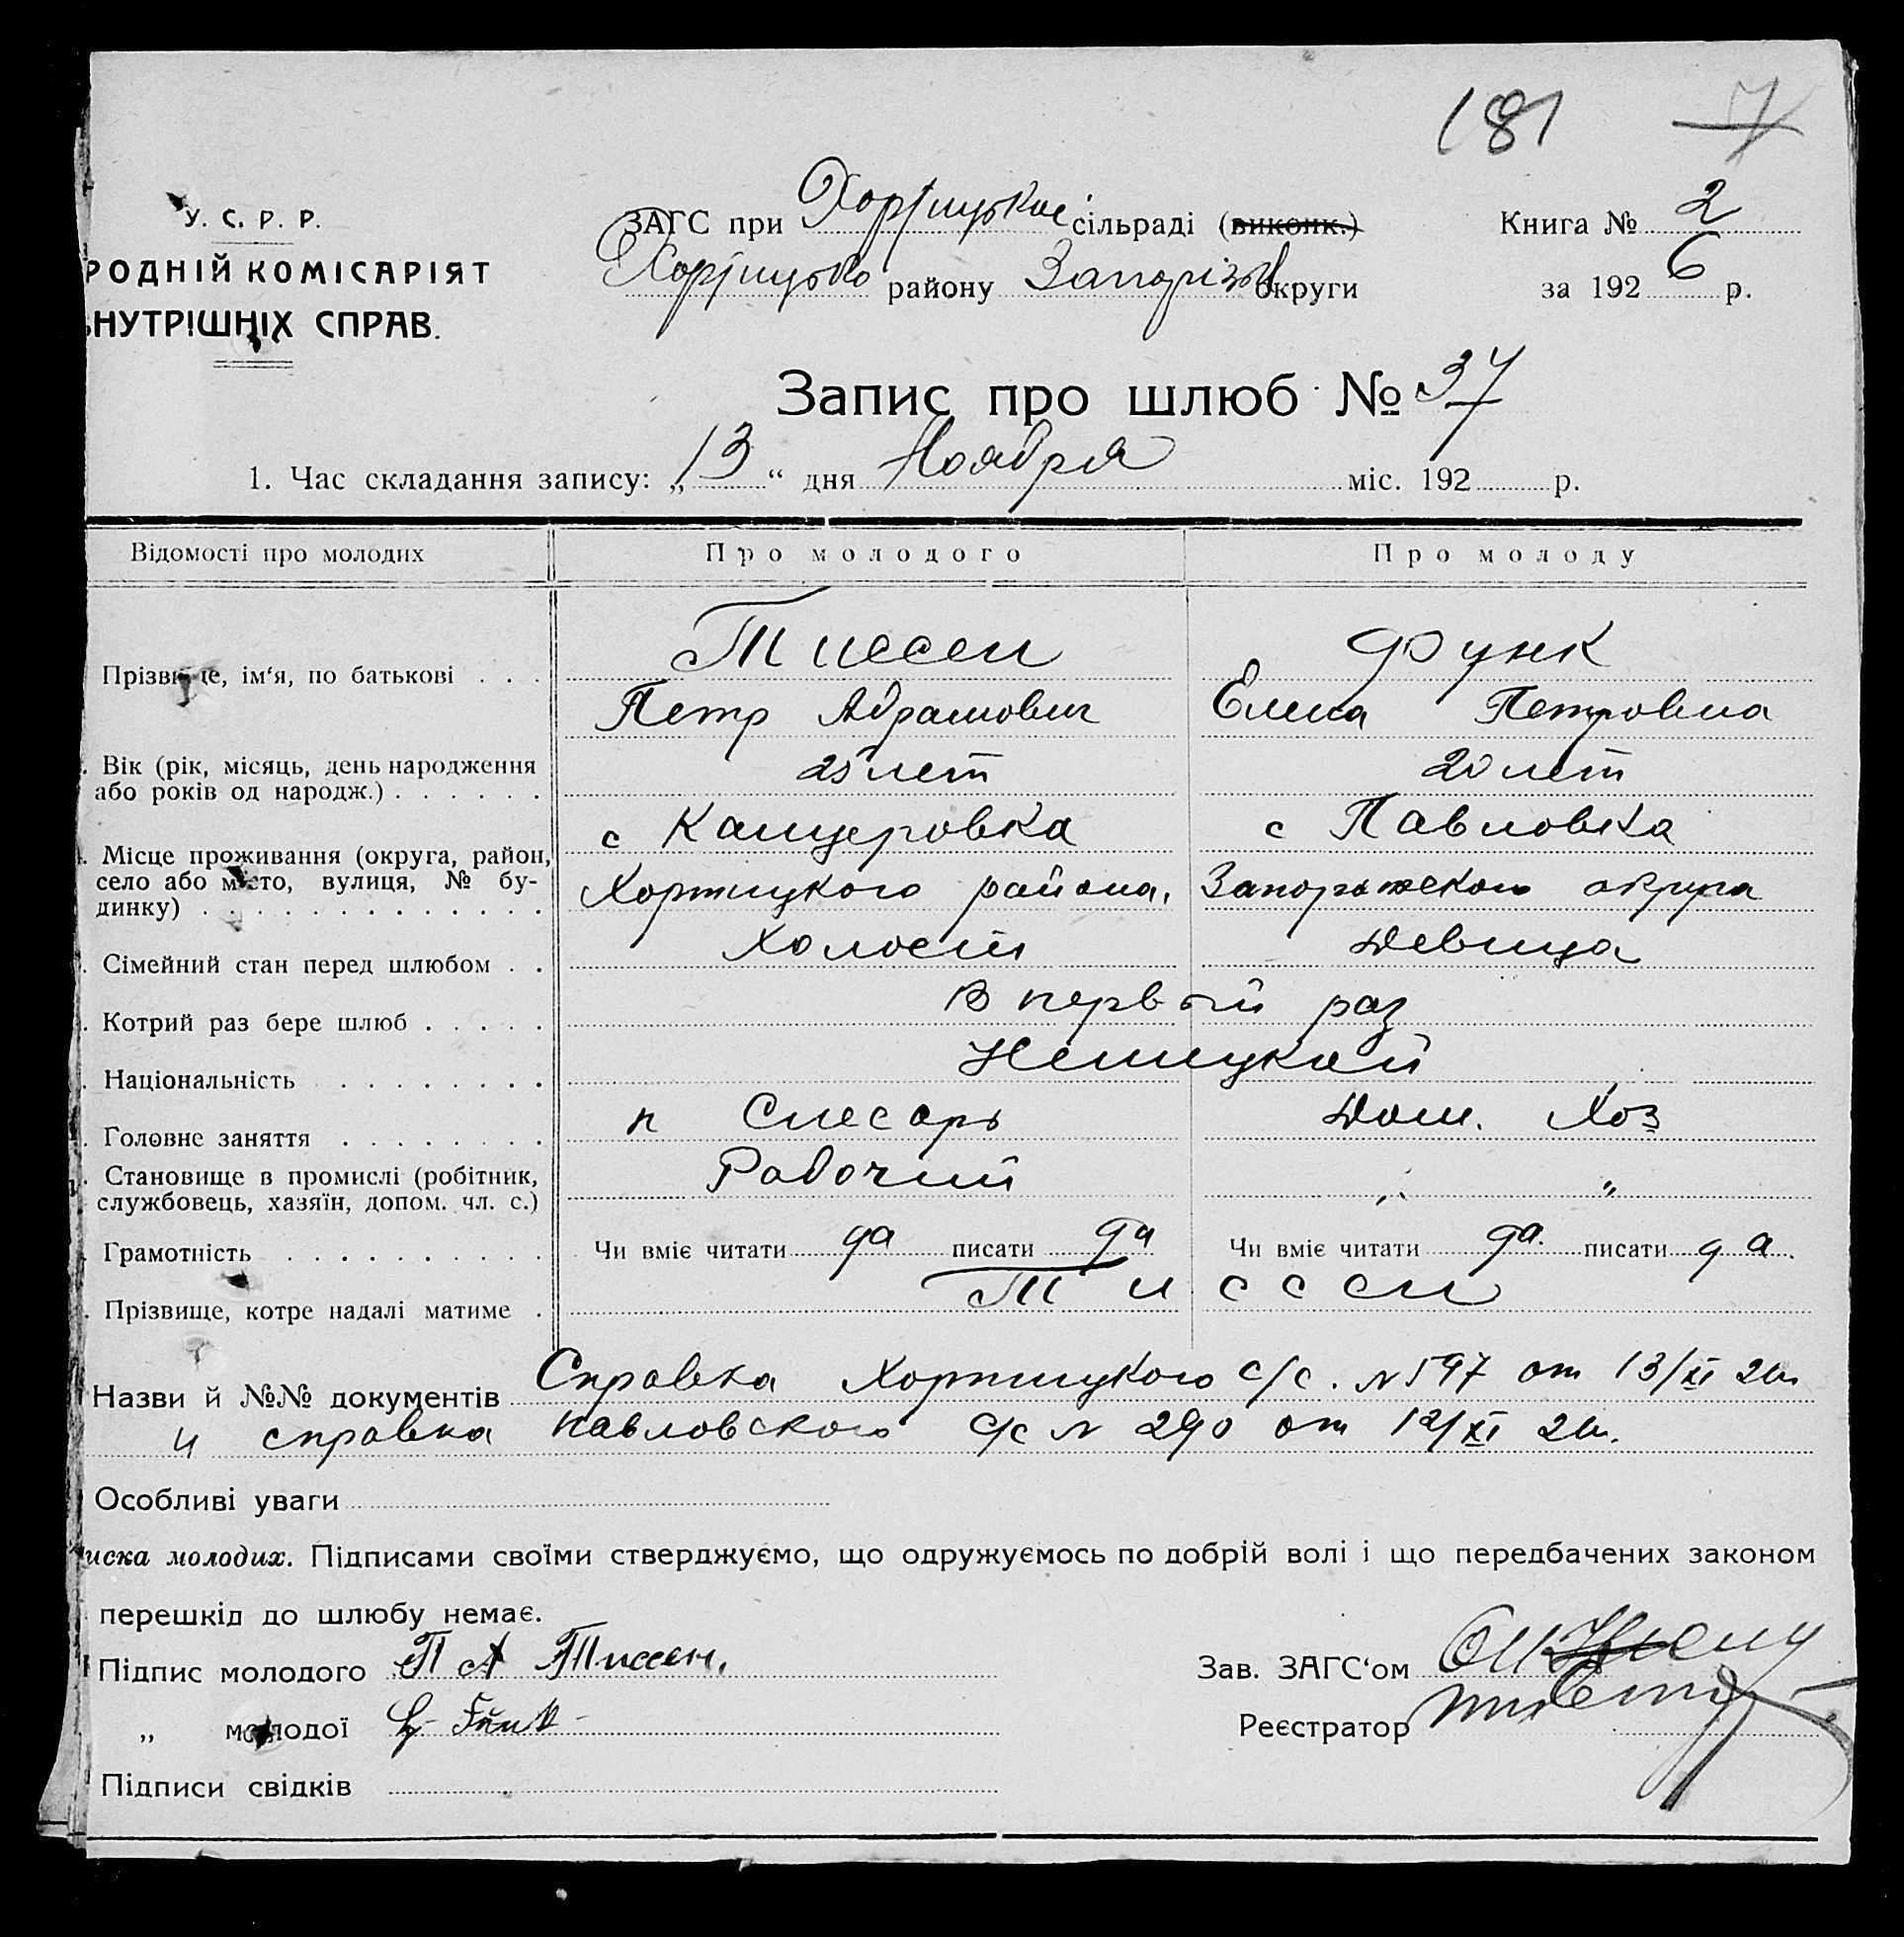 181 7
У. С. Р. Р.
РОДНІЙ КОМІСАРІЯТ
ВНУТРІШНІХ СПРАВ.
ЗАГС при Хортицькое сільраді (виконк.) Книга № 2
Хортицько району Запорізьк округи за 1926 р.
Запис про шлюб № 37
1. Час складання запису: „13“ дня Ноября міс. 192 р.
Відомості про молодих Про молодого Про молоду
Тиссен Функ
Прізвище, ім‘я, по батькові . . .
Петр Абрамович Елена Петровна
. Вік (рік, місяць, день народження 25 лет 20 лет
або років од народж.) . . . . . .
с Канцеровка с Павловка
. Місце проживання (округа, район,
село або місто, вулиця, № бу- Хортицкого района, Запорожского округа
динку) . . . . . . . . . . . . .
. Сімейний стан перед шлюбом . . Холост Девица
. Котрий раз бере шлюб . . . . . В первый раз
. Національність . . . . . . . . Немецкой
. Головне заняття . . . . . . . . п Слесарь Дом. Хоз
. Становище в промислі (робітник, Рабочий „ „
службовець, хазяїн, допом. чл. с.)
. Грамотність . . . . . . . . . . Чи вміє читати да писати да Чи вміє читати да. писати да.
. Прізвище, котре надалі матиме . Тиссен
Назви й №№ документів Справка Хортицкого с/с. № 597 от 13/XI 26г
и справка Павловского с/с № 290 от 12/XI 26г.
Особливі уваги
иска молодих. Підписами своїми стверджуємо, що одружуємось по добрій волі і що передбачених законом
перешкід до шлюбу немає.
Підпис молодого П А Тиссен. Зав. ЗАГС‘ом
„ молодої Funk Реєстратор
Підписи свідків